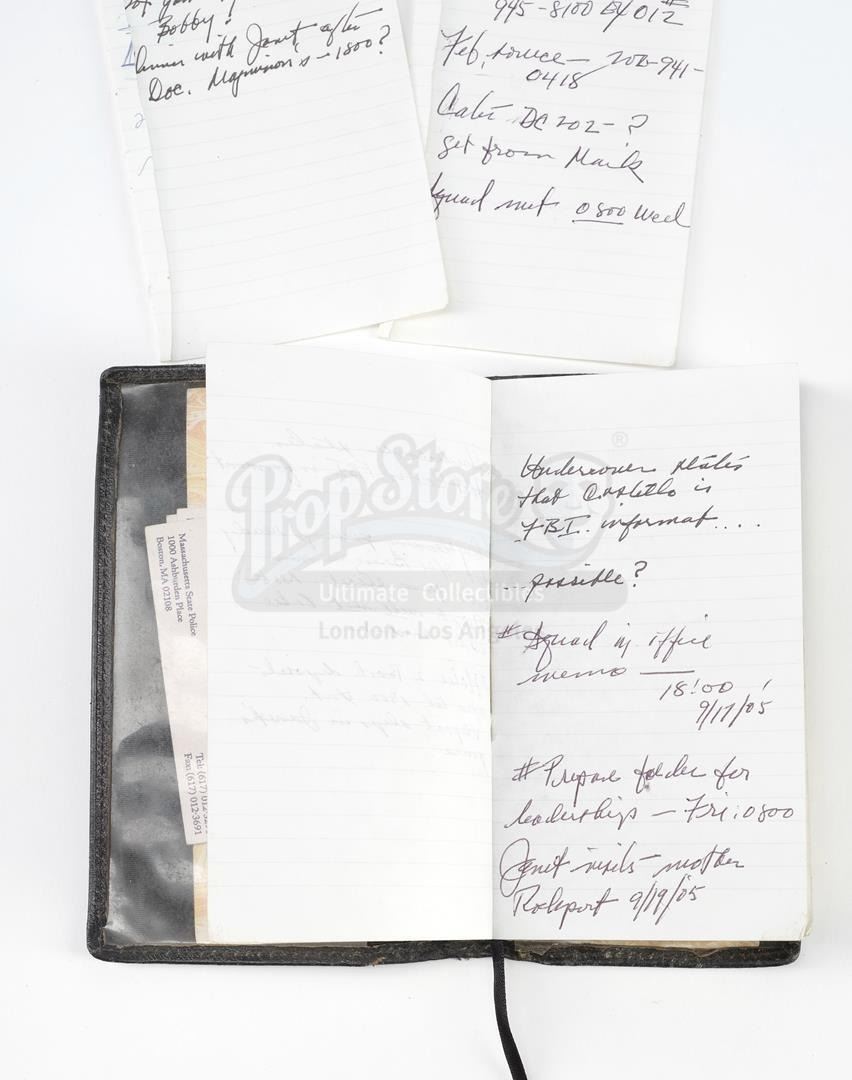 Bobby?
dinner with Janet after
Doc. Magnusion's - 1800?
945-8100 EX 012
Feb, source - 202-941-
0418
DC 202- ?
get from Mark
Squad met 0800 Wed
Undercover states
that Costello is
FBI. informat....
possible?
# Squad in office
memo —
18:00
9/17/05
# Prepare folder for
leadership - Fri: 0800
Janet visits mother
Rockport 9/19/05
Massachusetts State Police
1000 Ashburden Place
Boston, MA 02108
Tel: (617) 012-
Fax: (617) 012-3691
Prop Store
®
Ultimate Collectibles
London - Los Angeles